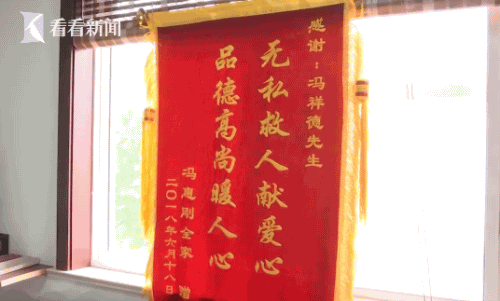 看看新闻
感谢：冯祥德先生
无私救人献爱心
品德高尚暖人心
冯惠刚全家 赠
二〇一八年六月十八日